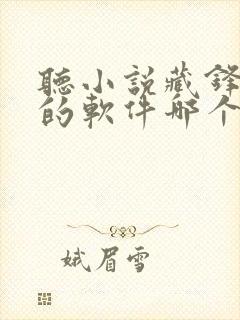 聽小說藏鋒
的軟件哪个
娥眉雪